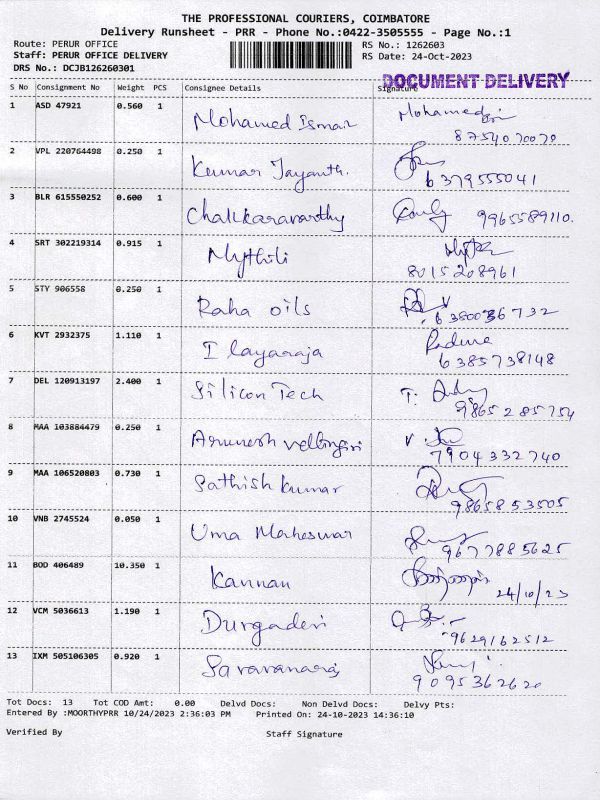 THE PROFESSIONAL COURIERS, COIMBATORE
Delivery Runsheet - PRR - Phone No.:0422-3505555 - Page No.:1
Route: PERUR OFFICE RS No.: 1262603
Staff: PERUR OFFICE DELIVERY RS Date: 24-Oct-2023
DRS No.: DCJB126260301 DOCUMENT DELIVERY
S No Consignment No Weight PCS Consignee Details Signature
1 ASD 47921 0.560 1 Mohamed Ismail Mohamed
8754070070
2 VPL 220764498 0.250 1 Kumar Jayanth.
6379555041
3 BLR 615550252 0.600 1 Chakkaravarthy 9965589110.
4 SRT 302219314 0.915 1 Mythili
8015208961
5 STY 906558 0.250 1 Raha oils
6380036732
6 KVT 2932375 1.110 1 Ilayaraja
6385738148
7 DEL 120913197 2.400 1 Silicon Tech T.
9865285754
8 MAA 103884479 0.250 1 Arunesh vellingiri V.
7904332740
9 MAA 106520803 0.730 1 Sathish kumar
9865853505
10 VNB 2745524 0.050 1 Uma Maheswar
9677885625
11 BOD 406489 10.350 1 Kannan
24/10/23
12 VCM 5036613 1.190 1 Durgadevi
9629162512
13 IXM 505106305 0.920 1 Saravanaraj
9095362620
Tot Docs: 13 Tot COD Amt: 0.00 Delvd Docs: Non Delvd Docs: Delvy Pts:
Entered By :MOORTHYPRR 10/24/2023 2:36:03 PM Printed On: 24-10-2023 14:36:10
Verified By Staff Signature